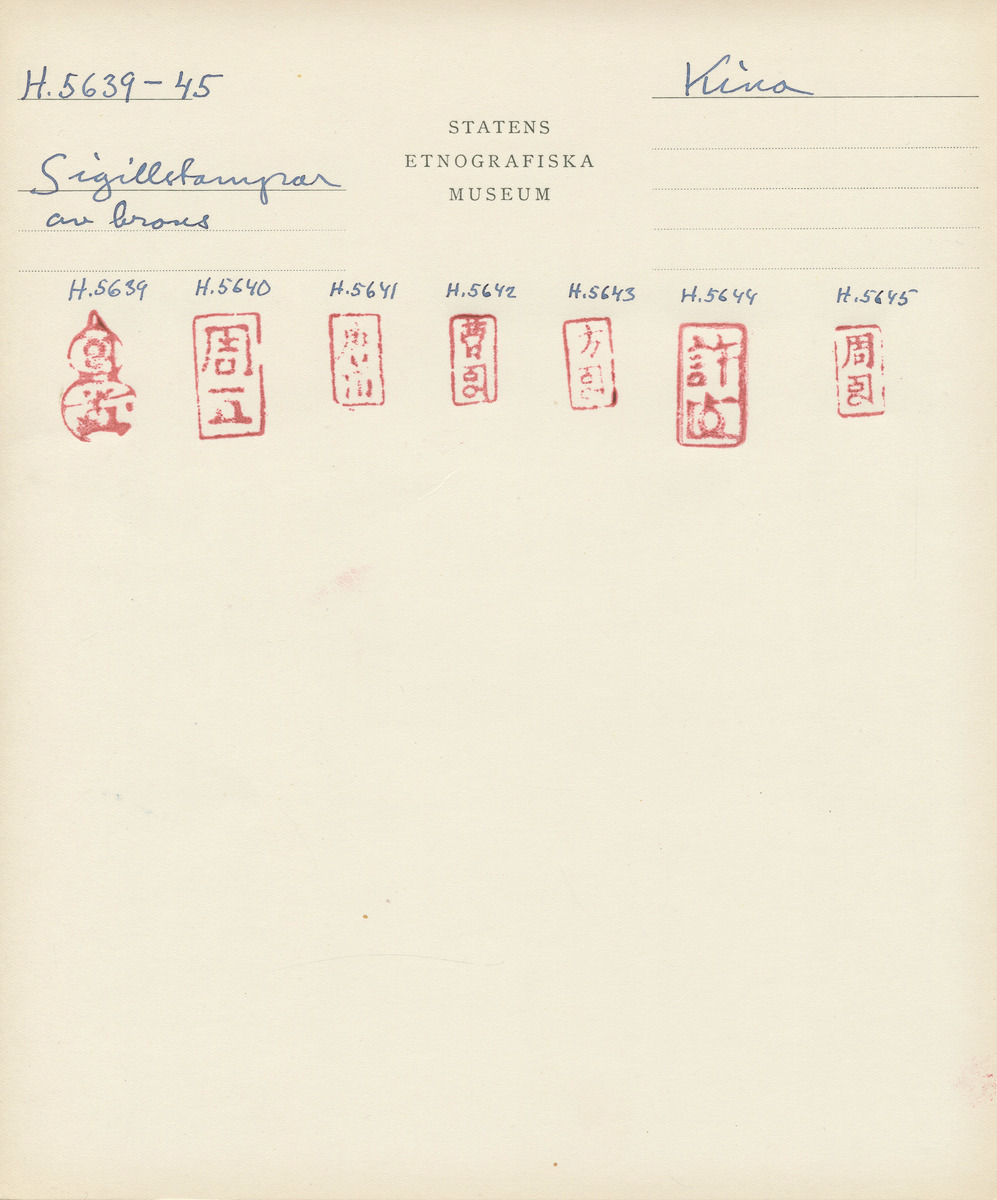 H.5639-45
Kina
STATENS
ETNOGRAFISKA
MUSEUM
Sigillstampar
av brons
H.5639 H.5640 H.5641 H.5642 H.5643 H.5644 H.5645
周 曹 方 許 周